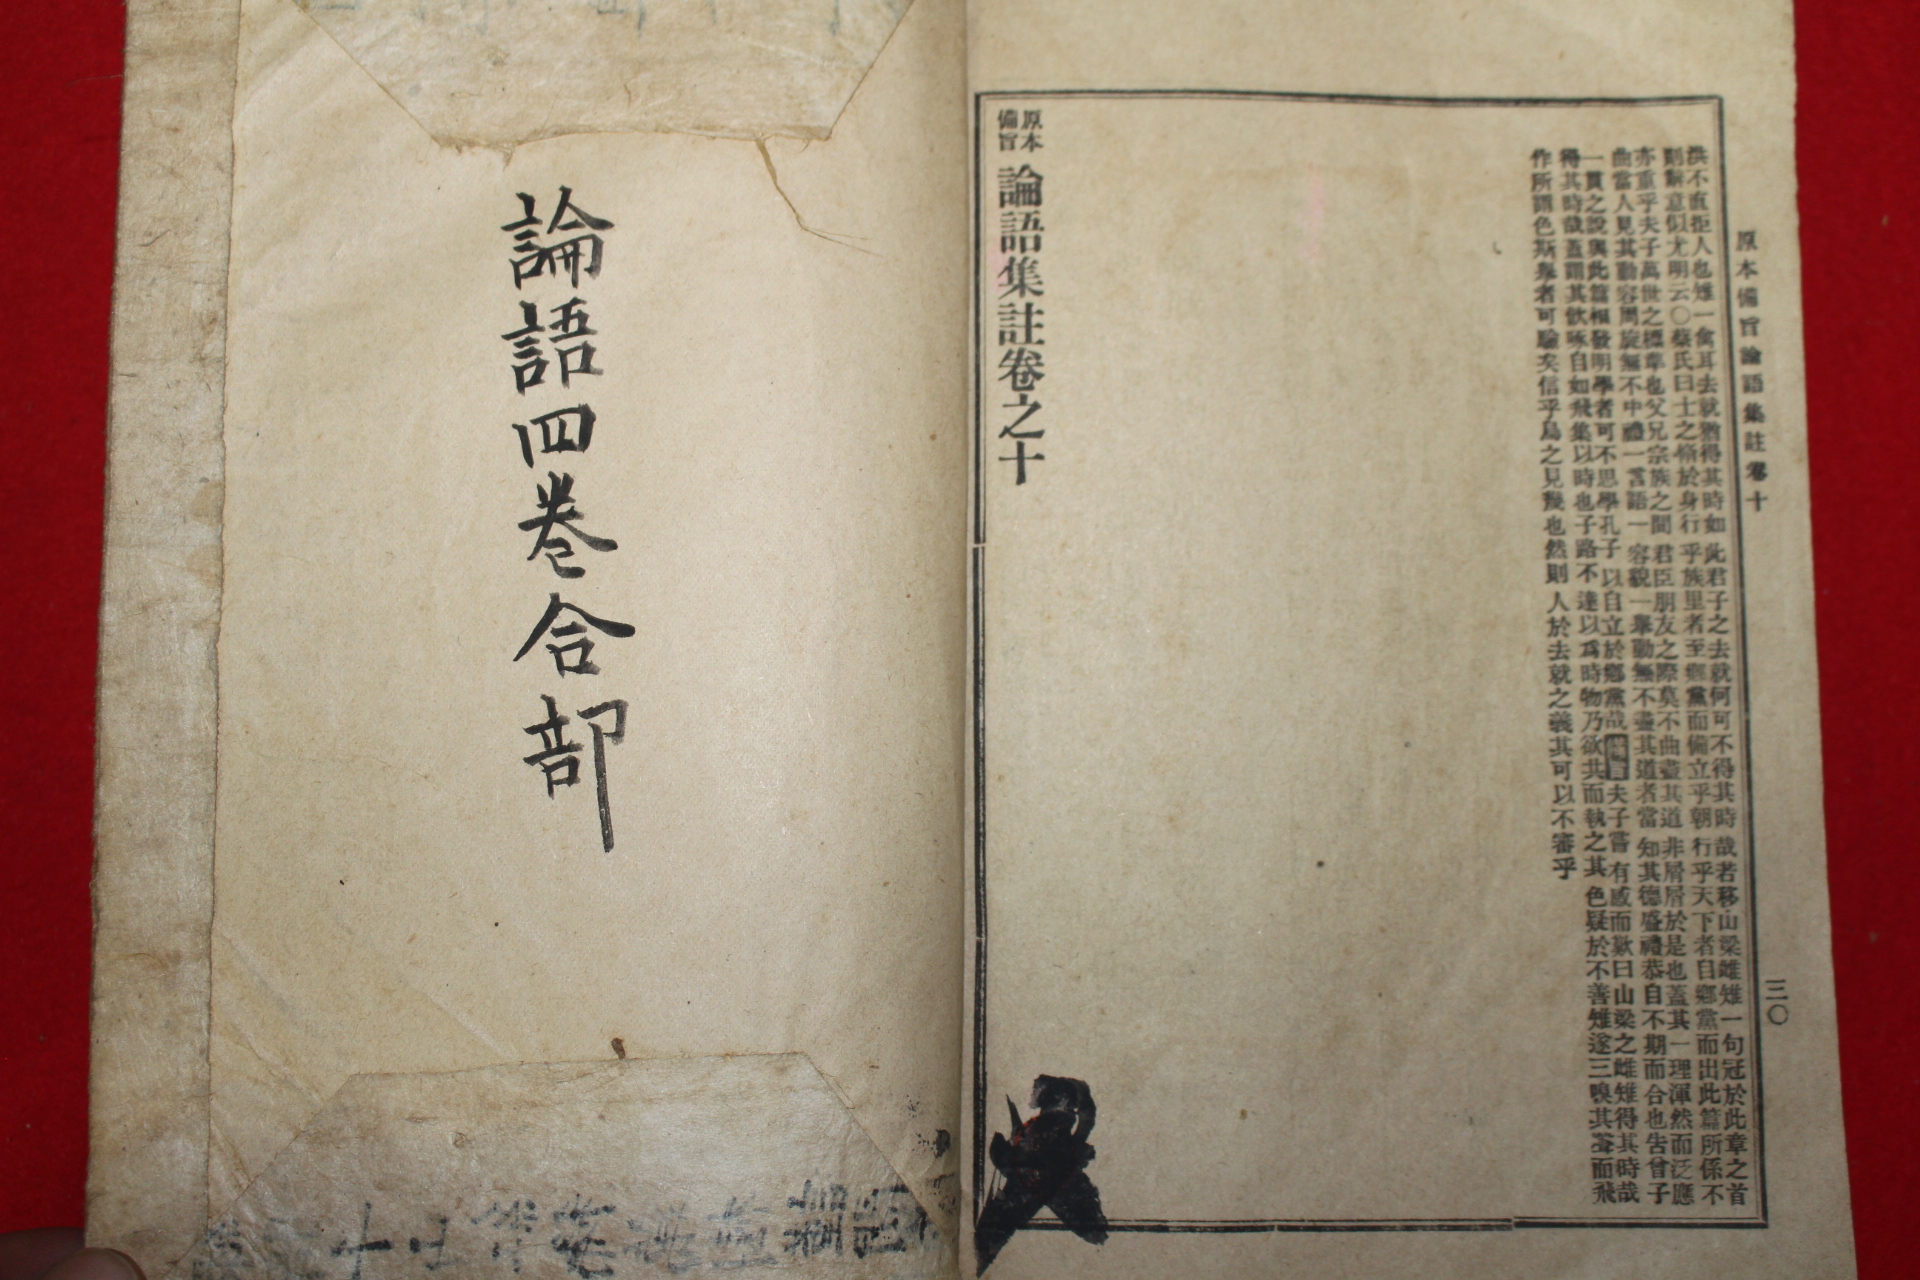 原本備旨論語集註 卷十
三〇
洪不直拒人也雉一禽耳去就猶得其時如此君子之去就何可不得其時哉若移山梁雌雉一句冠於此章之首
則辭意似尤明云〇蔡氏曰士之脩於身行乎族里者至鄕黨而備立乎朝行乎天下者自鄕黨而出此篇所係不
亦重乎夫子萬世之標準也父兄宗族之間君臣朋友之際莫不曲盡其道非屑屑於是也蓋其一理渾然而泛應
曲當人見其動容周旋無不中禮一言語一容貌一擧動無不盡其道者當知其德盛禮恭自不期而合也告曾子
一貫之說與此篇相發明學者可不思學孔子以自立於鄕黨哉 夫子嘗有感而歎曰山梁之雌雉得其時哉
得其時哉蓋謂其飮啄自如飛集以時也子路不達以爲時物乃欲共而執之其色疑於不善雉遂三嗅其而飛
作所謂色斯擧者可驗矣信乎鳥之見幾也然則人於去就之義其可以不審乎
原本備旨 論語集註卷之十
論語四卷合部